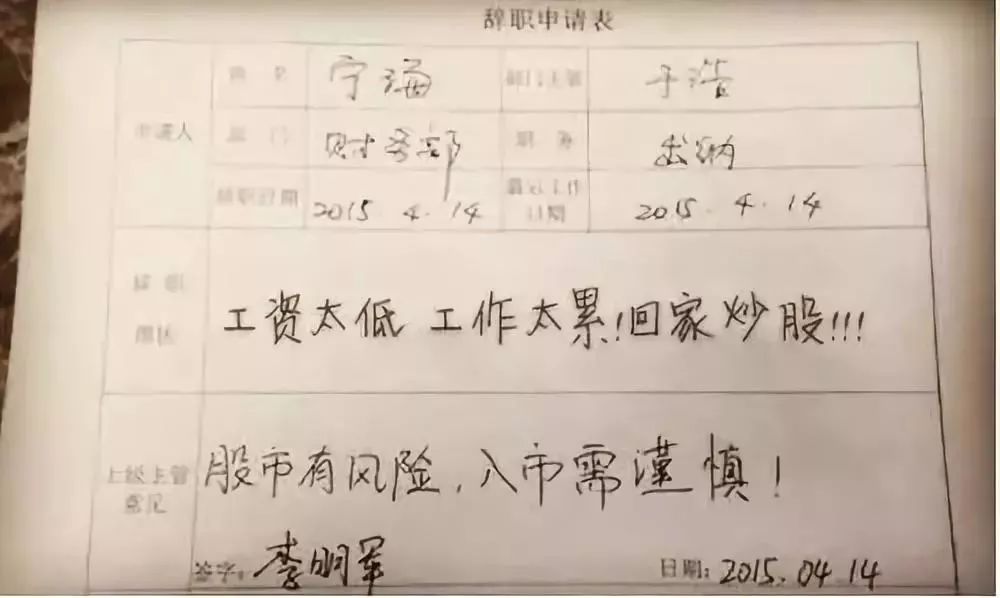 辞职申请表
申请人 姓名 宁海 部门主管 于浩
部门 财务部 职务 出纳
辞职日期 2015.4.14 最后工作日期 2015.4.14
辞职原因 工资太低 工作太累!回家炒股!!!
上级主管意见 股市有风险,入市需谨慎!
签字: 李明军 日期: 2015.04.14